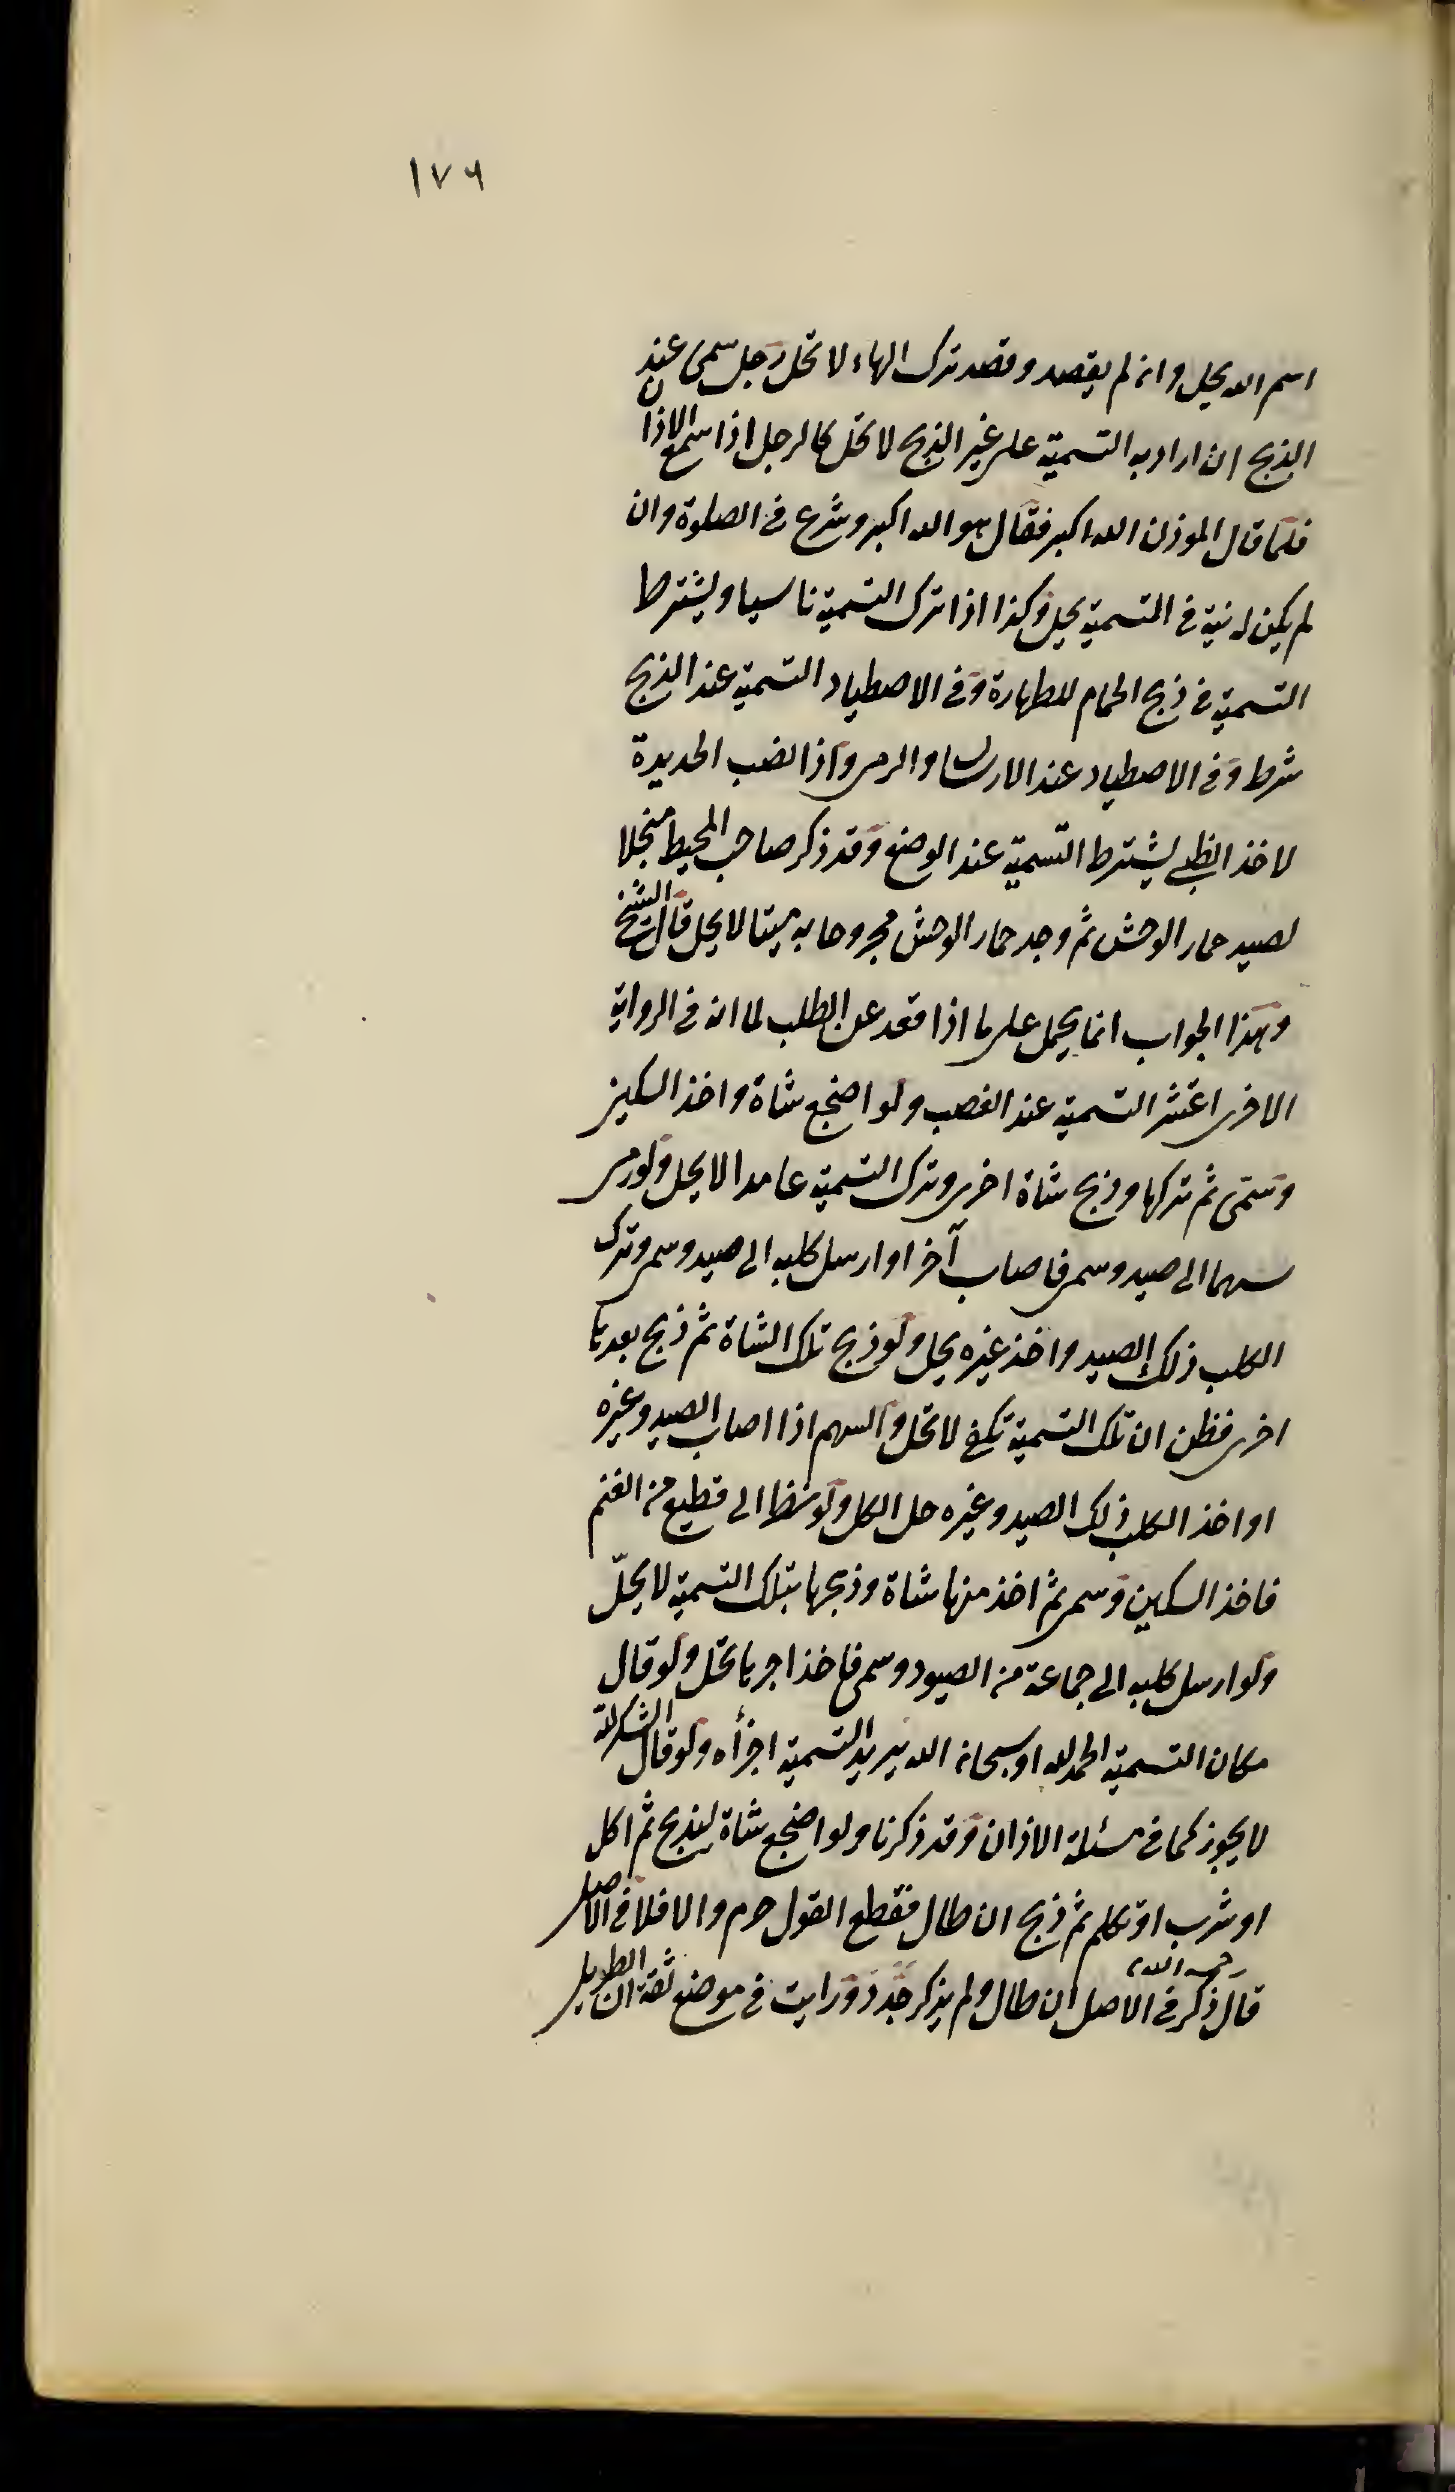 ١٧٦
اسم الله يحل وان لم يقصد وقصد ترك الهاء لا تحل رجل سمى عند
الذبح ان اراد به التسمية على غير الذبح لا تحل كالرجل اذا سمع الاذان
فلما قال الموذن الله اكبر فقال هو الله اكبر وشرع فى الصلوة وان
لم يكن له نية فى التسمية يحل وكذا اذا ترك التسمية ناسيا ويشترط
التسمية فى ذبح الحمام للطهارة وفى الاصطياد التسمية عند الذبح
شرط وفى الاصطياد عند الارسال والرمى واذا نصب الحديدة
لاخذ الظبى يشترط التسمية عند الوضع وقد ذكر صاحب المحيط منجلا
لصيد حمار الوحش ثم وجد حمار الوحش مجروحا به ميتا لا يحل قال الشيخ
وهذا الجواب انما يحمل على ما اذا قعد عن الطلب لما ان فى الرواية
الاخرى التسمية عند ولو اضجع شاة واخذ السكين
وسمى ثم تركها وذبح شاة اخرى وترك التسمية عامدا لا يحل ولو رمى
سهما الى صيد وسمى فاصاب آخر او ارسل كلبه الى صيد وسمى وترك
الكلب ذلك الصيد واخذ غيره يحل ولو ذبح تلك الشاة ثم ذبح بعدها
اخرى فظن ان تلك التسمية تكفى لا تحل والسهم اذا اصاب الصيد وغيره
او اخذ الكلب ذلك الصيد وغيره حل الكل ولو نظر الى قطيع من الغنم
فاخذ السكين وسمى ثم اخذ منها شاة وذبحها بتلك التسمية لا يحلّ
ولو ارسل كلبه الى جماعة من الصيود وسمى فاخذ احدها تحل ولو قال
مكان التسمية الحمد لله او سبحان الله يريد التسمية اجزأه ولو قال الشكر لله
لا يجوز كما فى مسئلة الاذان وقد ذكرنا ولو اضجع شاة ليذبح ثم اكل
او شرب او تكلم ثم ذبح ان طال فقطع القول حرم والا فلا فى الاصل
رحمه الله
قال ذكر فى الاصل ان طال ولم يذكر ورايت فى موضع ثقة ان الطويل